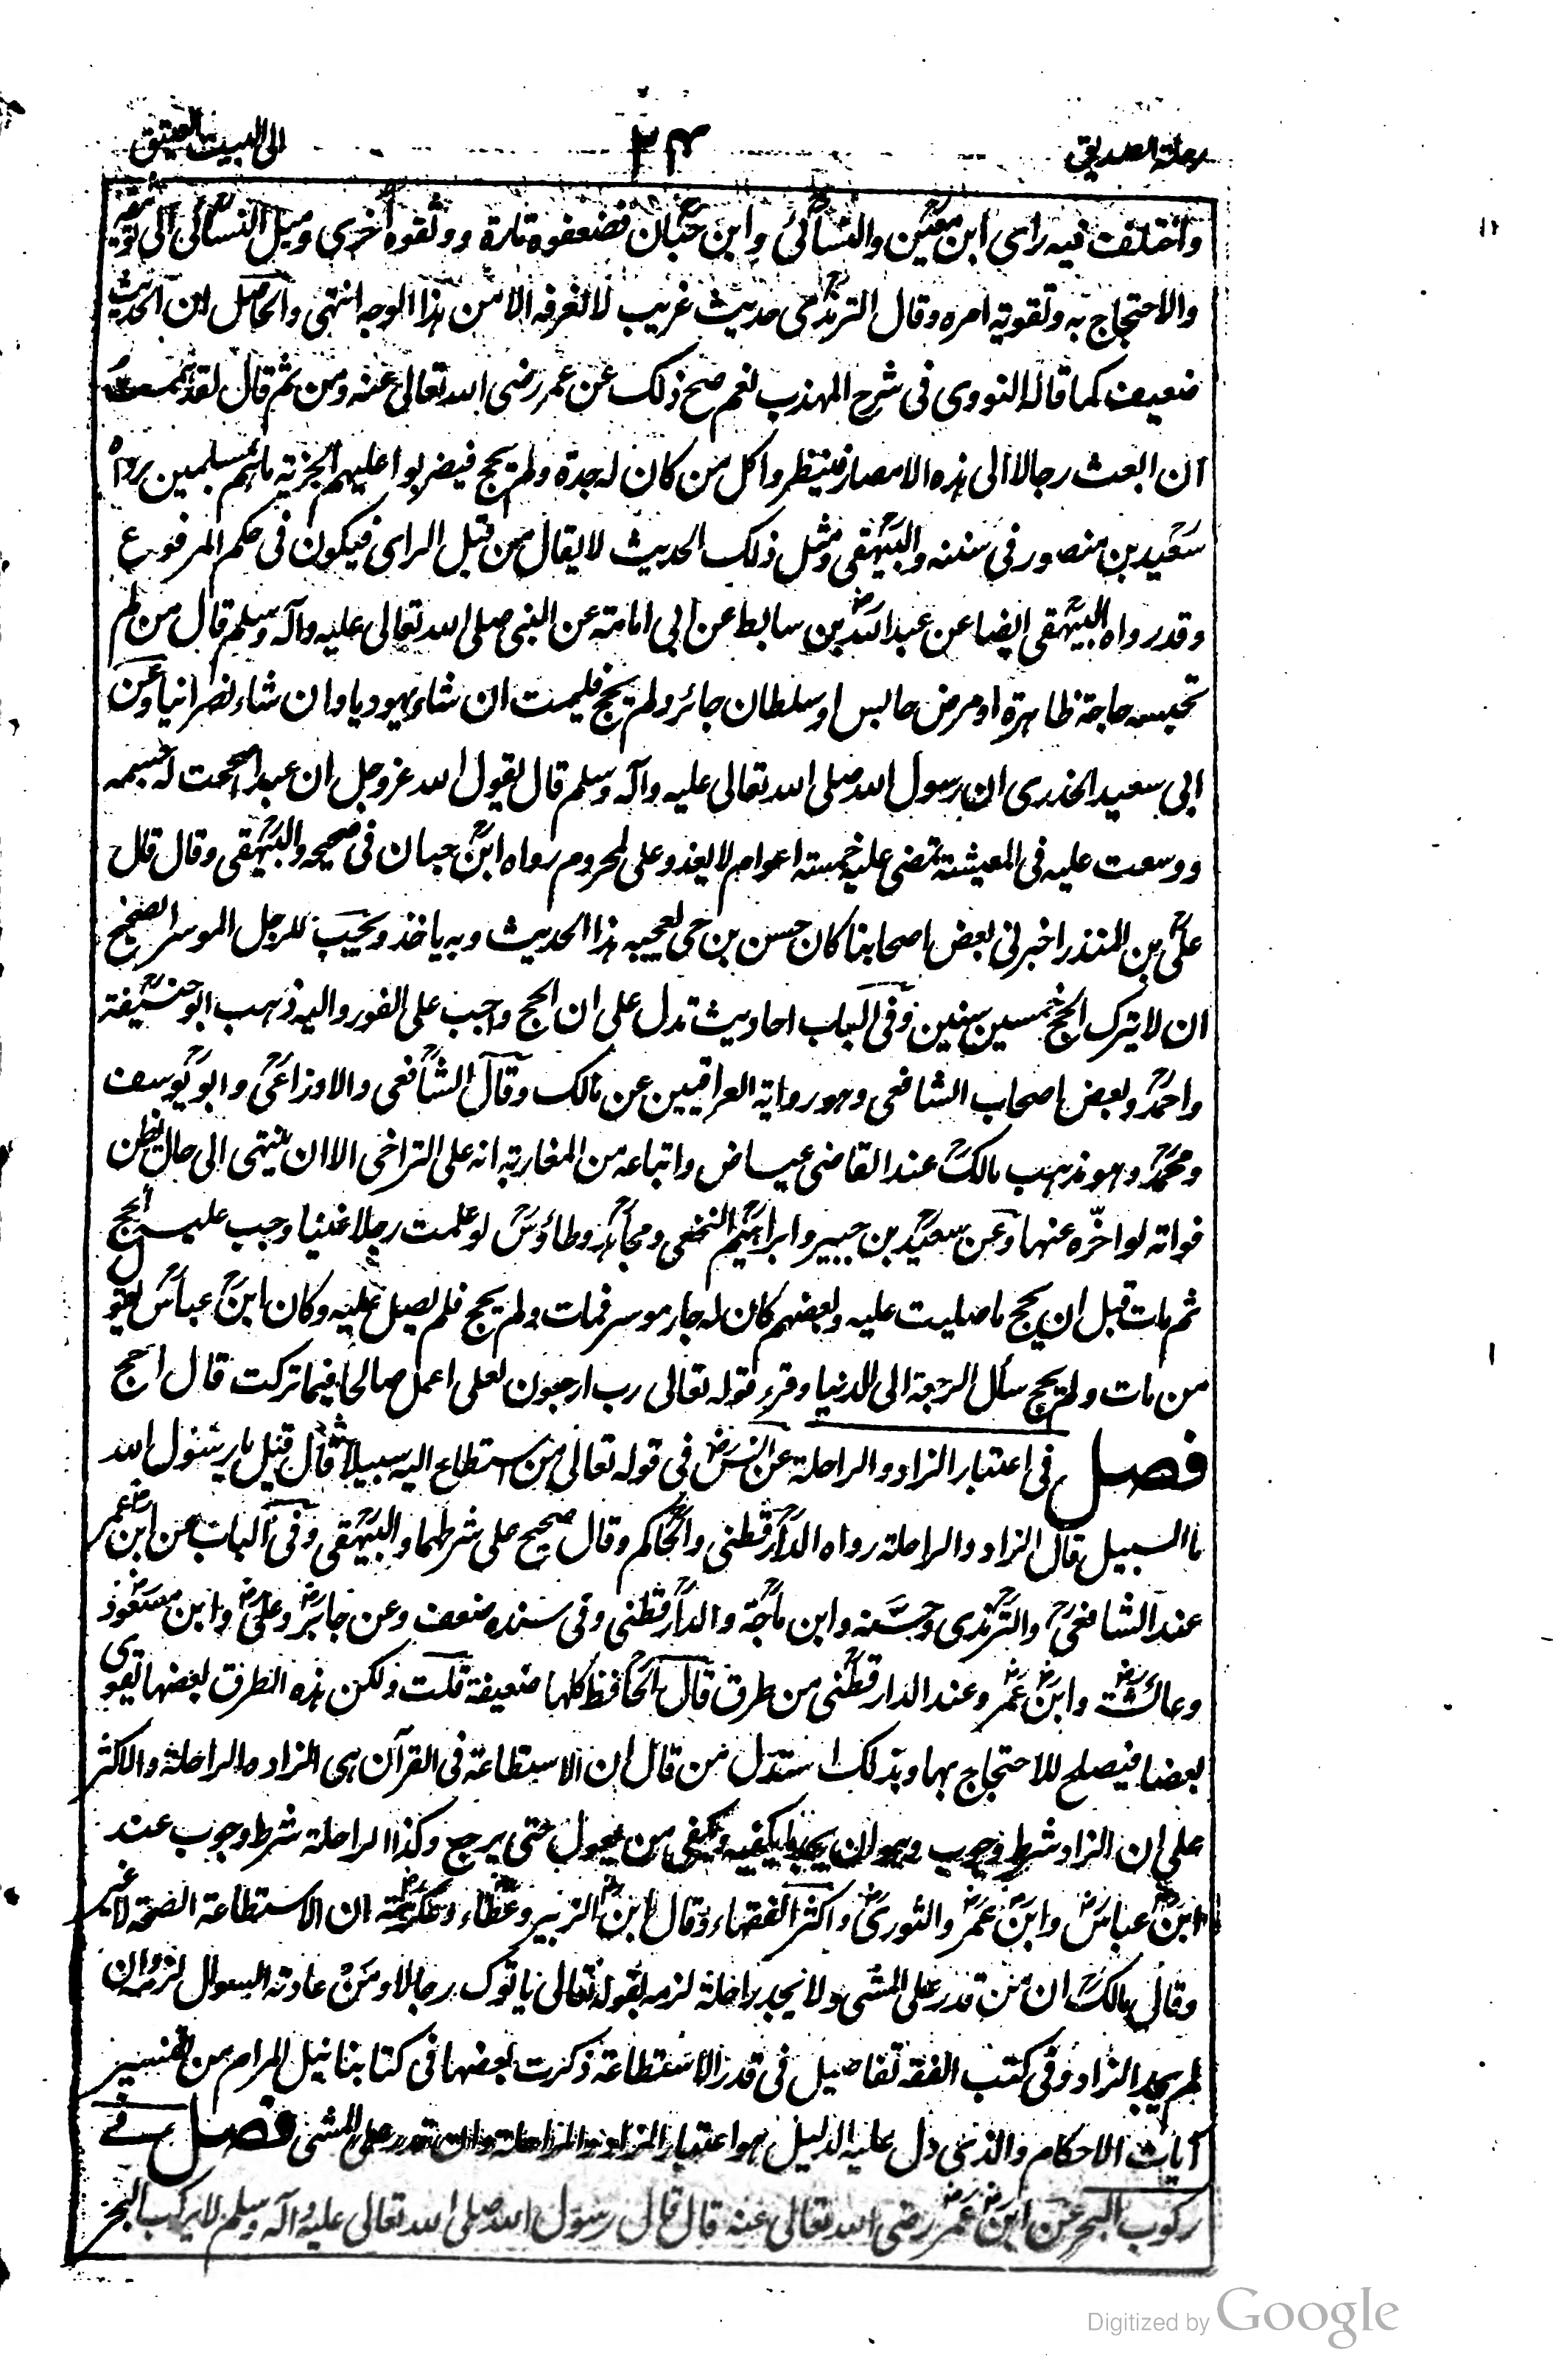 رحلة الصديق
٣٤
الى البيت العتيق
واختلف فيه راى ابن معين والنسائى وابن حبان فضعفوه تارة ووثقوه اخرى وميل النسائى الى توثيقه
والاحتجاج به وتقوية امره وقال الترمذى حديث غريب لا نعرفه الا من هذا الوجه انتهى والحاصل ان الحديث
ضعيف كما قاله النووى فى شرح المهذب نعم صح ذلك عن عمر رضى الله تعالى عنه ومن ثم قال لقد هممت
ان ابعث رجالا الى هذه الامصار فينظروا كل من كان له جدة ولم يحج فيضربوا عليهم الجزية ما هم بمسلمين رواه
سعيد بن منصور فى سننه والبيهقى ومثل ذلك الحديث لا يقال من قبل الراى فيكون فى حكم المرفوع
وقد رواه البيهقى ايضا عن عبد الله بن سابط عن ابى امامة عن النبى صلى الله تعالى عليه وآله وسلم قال من لم
تحبسه حاجة ظاهرة او مرض حابس او سلطان جائر ولم يحج فليمت ان شاء يهوديا وان شاء نصرانيا وعن
ابى سعيد الخدرى ان رسول الله صلى الله تعالى عليه وآله وسلم قال يقول الله عز وجل ان عبدا صححت له جسمه
ووسعت عليه فى المعيشة تمضى عليه خمسة اعوام لا يغدو على لمحروم رواه ابن حبان فى صحيحه والبيهقى وقال قال
على بن المنذر اخبرنى بعض اصحابنا كان حسن بن حى يعجبه هذا الحديث وبه ياخذ ويحب للرجل الموسر الصحيح
ان لا يترك الحج خمس سنين وفى الباب احاديث تدل على ان الحج واجب على الفور واليه ذهب ابو حنيفة
واحمد وبعض اصحاب الشافعى وهو رواية العراقيين عن مالك وقال الشافعى والاوزاعى وابو يوسف
ومحمد وهو مذهب مالك عند القاضى عياض واتباعه من المغاربة انه على التراخى الا ان ينتهى الى حال يظن
فواته لو اخّره عنها وعن سعيد بن جبير وابراهيم النخعى ومجاهد وطاؤس لو علمت رجلا غنيا وجب عليه الحج
ثم مات قبل ان يحج ما صليت عليه وبعضهم كان له جار موسر فمات ولم يحج فلم يصل عليه وكان ابن عباس يقول
من مات ولم يحج سأل الرجعة الى الدنيا وقرء قوله تعالى رب ارجعون لعلى اعمل صالحا فيما تركت قال احج
فصل فى اعتبار الزاد والراحلة عن انس فى قوله تعالى من استطاع اليه سبيلا قال قيل يا رسول الله
ما السبيل قال الزاد والراحلة رواه الدارقطنى والحاكم وقال صحيح على شرطهما والبيهقى وفى الباب عن ابن عمر
عند الشافعى والترمذى وحسنه وابن ماجة والدارقطنى وفى سنده ضعف وعن جابر وعلى وابن مسعود
وعائشة وابن عمر وعند الدارقطنى من طرق قال الحافظ كلها ضعيفة قلت ولكن هذه الطرق بعضها يقوى
بعضا فيصلح للاحتجاج بها وبذلك استدل من قال ان الاستطاعة فى القرآن هى الزاد والراحلة والاكثر
على ان الزاد شرط وجوب وهو ان يجد ما يكفيه ويكفى من يعول حتى يرجع وكذا الراحلة شرط وجوب عند
ابن عباس وابن عمر والثورى واكثر الفقهاء وقال ابن الزبير وعطاء وعكرمة ان الاستطاعة الصحة لا غير
وقال مالك ان من قدر على المشى ولا يجد راحلة لزمه بقوله تعالى ياتوك رجالا ومن عادته السوال لزمه وان
لم يجد الزاد وفى كتب الفقه تفاصيل فى قدر الاستطاعة ذكرت بعضها فى كتابنا نيل المرام من تفسير
آيات الاحكام والذى دل عليه الدليل هو اعتبار الزاد والراحلة وان قدر على المشى فصل فى
ركوب البحر عن ابن عمر رضى الله تعالى عنه قال قال رسول الله صلى الله تعالى عليه وآله وسلم لا يركب البحر
Digitized by Google